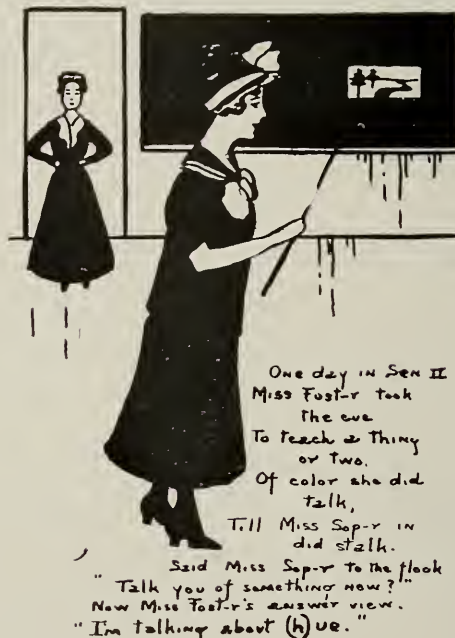 One day in Sen II
Miss Fost-r took
the cue
To teach a thing
or two.
Of color she did
talk,
Till Miss Sop-r in
did stalk.
Said Miss Sop-r to the flock
"Talk you of something new?"
Now Miss Fost-r's answer view.
"I'm talking about (h)ue."